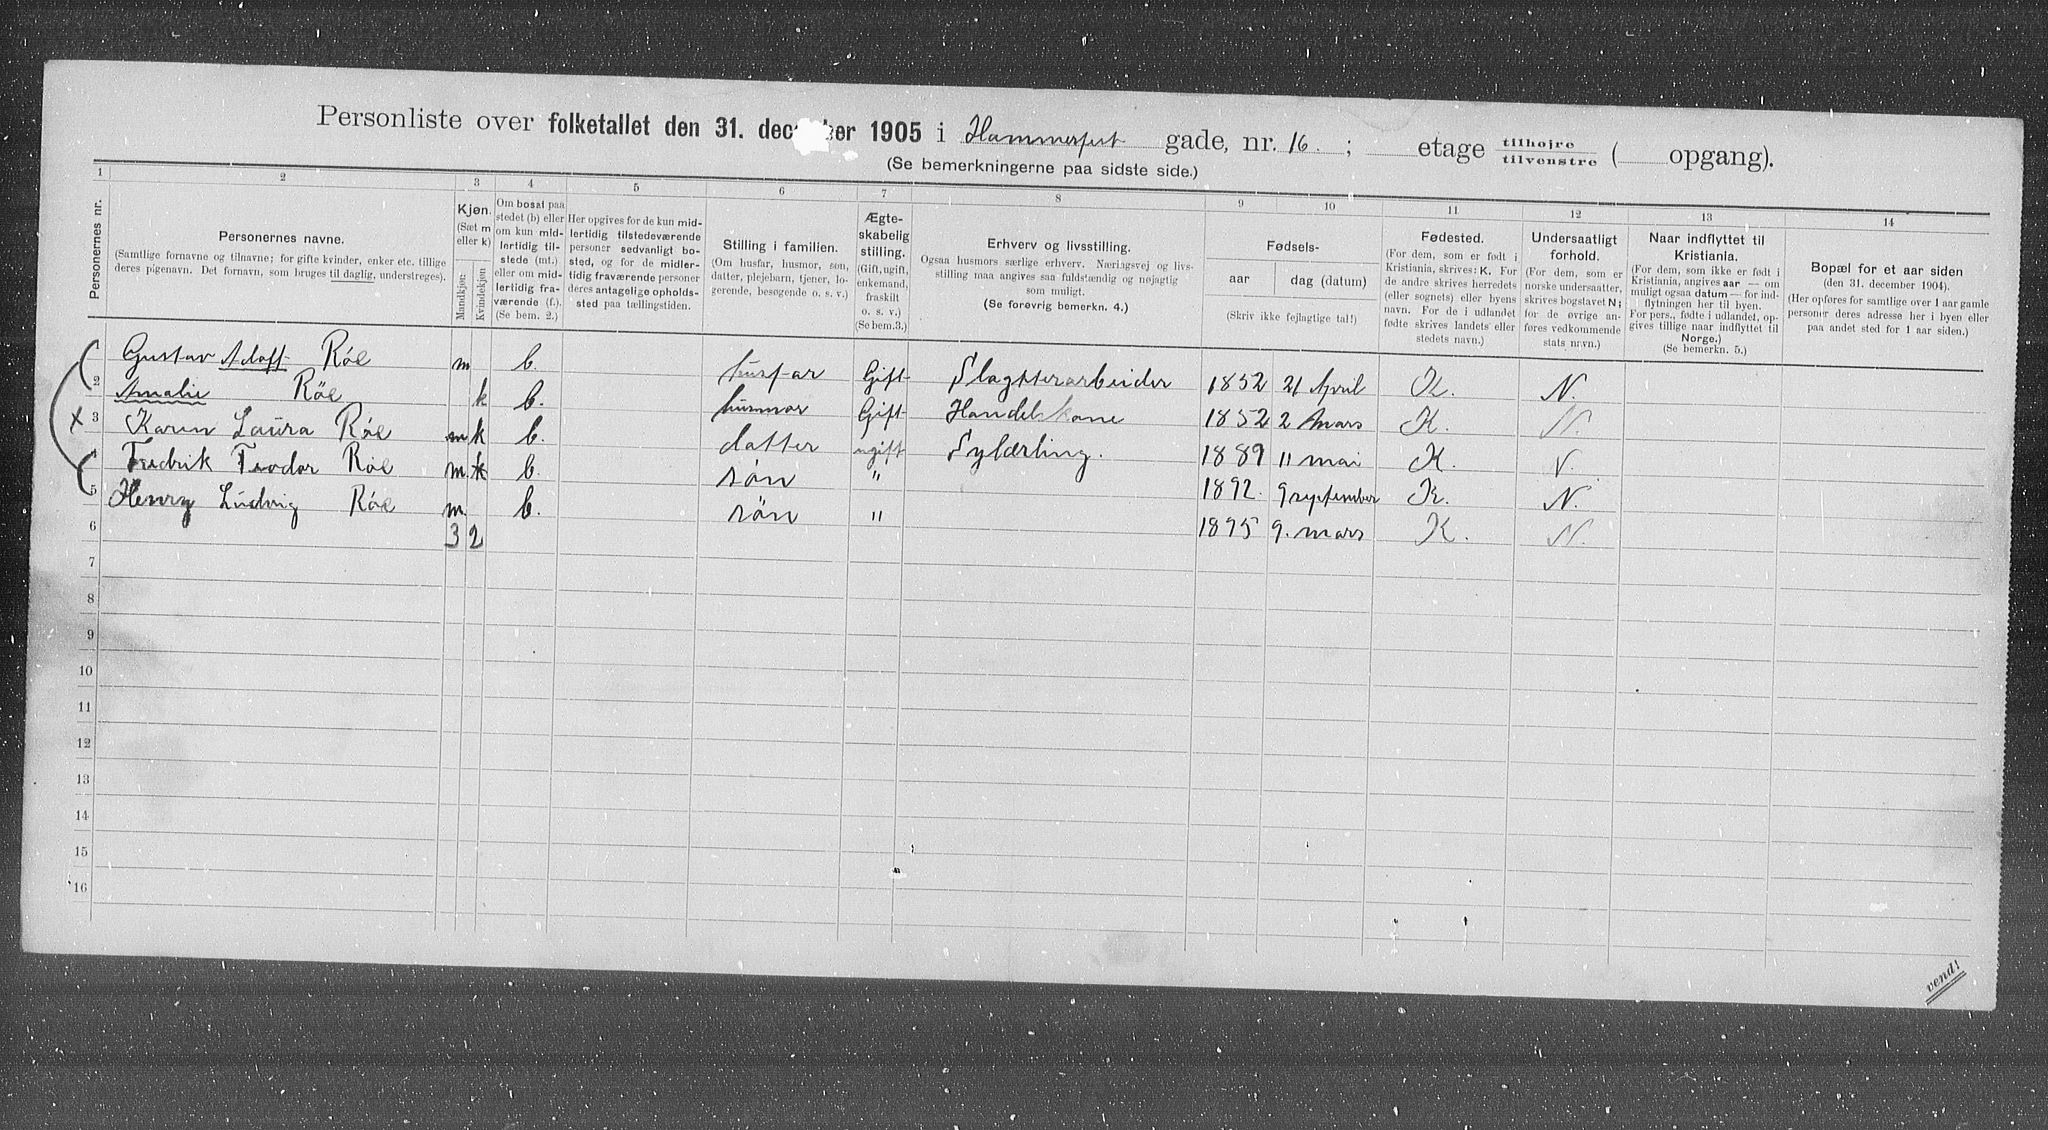 Personliste over folketallet den 31. dec er 1905 i Hammerfest gade, nr. 16. ; etage tilhøjre tilvenstre ( opgang).
(Se bemerkningerne paa sidste side.)
1 2 3 4 5 6 7 8 9 10 11 12 13 14
Personernes nr.
Personernes navne.
(Samtlige fornavne og tilnavne; for gifte kvinder, enker etc. tillige
deres pigenavn. Det fornavn, som bruges til daglig, understreges).
Kjøn.
(Sæt m
eller k)
Mandkjøn:
Kvindekjøn
Om bosat paa
stedet (b) eller
om kun mid-
lertidig til-
stede (mt.)
eller om mid-
lertidig fra-
værende (f.).
(Se bem. 2.)
Her opgives for de kun mid-
lertidig tilstedeværende
personer sedvanligt bo-
sted, og for de midler-
tidig fraværende personer
deres antagelige opholds-
sted paa tællingstiden.
Stilling i familien.
(Om husfar, husmor, søn,
datter, plejebarn, tjener, lo-
gerende, besøgende o. s. v.)
Ægte-
skabelig
stilling.
(Gift, ugift,
enkemand,
fraskilt
o. s. v.)
(Se bem.3.)
Erhverv og livsstilling.
Ogsaa husmors særlige erhverv. Næringsvej og livs-
stilling maa angives saa fuldstændig og nøjagtig
som muligt.
(Se forøvrig bemerkn. 4.)
Fødsels-
aar dag (datum)
(Skriv ikke fejlagtige tal!)
Fødested.
(For dem, som er født i
Kristiania, skrives: K. For
de andre skrives herredets
(eller sognets) eller byens
navn. For de i udlandet
fødte skrives landets eller
stedets navn.)
Undersaatligt
forhold.
(For dem, som er
norske undersaatter,
skrives bogstavet N;
for de øvrige an-
føres vedkommende
stats navn.)
Naar indflyttet til
Kristiania.
(For dem, som ikke er født i
Kristiania, angives aar — om
muligt ogsaa datum — for ind-
flytningen her til byen.
For pers., fødte i udlandet, op-
gives tillige naar indflyttet til
Norge.)
(Se bemerkn. 5.)
Bopæl for et aar siden
(den 31. december 1904).
(Her opføres for samtlige over 1 aar gamle
personer deres adresse her i byen eller
paa andet sted for 1 aar siden.)
1 Gustav Adolf Röe m b. husfar Gift Slagtterarbeider 1852 21 April K. N.
2 Amalie Röe k b. husmor Gift Handelskone 1852 2 Mars K. N.
x 3 Karen Laura Röe m k b. datter ugift Sylærling. 1889 11 mai K. N.
4 Fredrik Teodor Röe m. k b. søn " 1892. 9 september K. N.
5 Henry Ludvig Röe m. b. sön " 1895 9. mars K. N.
6 3 2
7
8
9
10
11
12
13
14
15
16
vend!